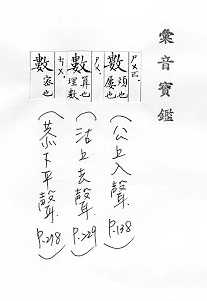 彙音寶鑑
ㄕㄨㄛ
數 頻也 屢也
ㄕㄨ
數 算也 理數
數 密也
(公上入聲 P.138)
(沽上去聲 P.229)
(恭下平聲 P.298)